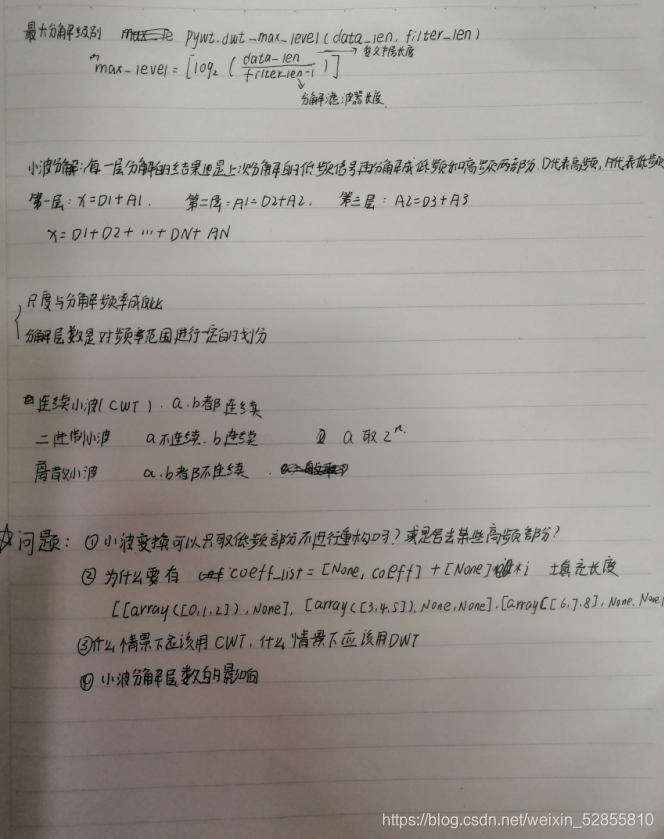 最大分解级别 pywt.dwt_max_level(data_len, filter_len)
max_level = [log2 ( data_len / filter_len-1 ) ]
分解滤波器长度
小波分解:每一层分解的结果是上次分解的低频信号再分解成低频和高频两部分.D代表高频,A代表低频
第一层: x=D1+A1. 第二层: A1=D2+A2. 第三层: A2=D3+A3
x=D1+D2+…+DN+AN
尺度与分解频率成反比
分解层数是对频率范围进行一定的划分
连续小波(CWT). a.b都连续
二进制小波 a不连续.b连续 a取2^n.
离散小波 a.b都不连续.
☆问题: ①小波变换可以只取低频部分不进行重构吗?或是舍去某些高频部分?
②为什么要有 coeff_list = [None, coeff] + [None] * i 填充长度
[[array([0,1,2]), None], [array([3,4,5]), None, None], [array([6,7,8], None, None
③什么情景下应该用CWT,什么情景下应该用DWT
④小波分解层数的影响
https://blog.csdn.net/weixin_52855810